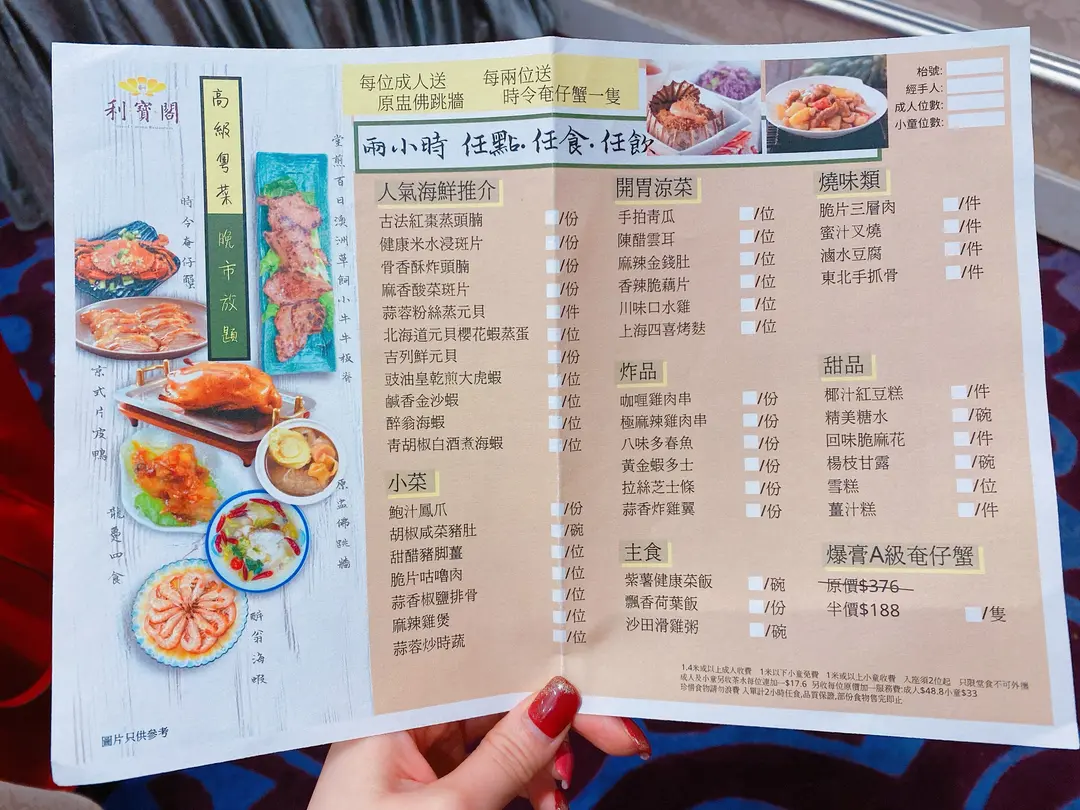 利寶閣
高級粵菜
晚市放題
時令奄仔蟹
堂煎百日澳洲草飼小牛牛板脊
京式片皮鴨
原盅佛跳牆
龍躉四食
醉翁海蝦
圖片只供參考
每位成人送
原盅佛跳牆
每兩位送
時令奄仔蟹一隻
兩小時 任點·任食·任飲
枱號:
經手人:
成人位數:
小童位數:
人氣海鮮推介
古法紅棗蒸頭腩 /份
健康米水浸斑片 /份
骨香酥炸頭腩 /份
麻香酸菜斑片 /份
蒜蓉粉絲蒸元貝 /件
北海道元貝櫻花蝦蒸蛋 /位
吉列鮮元貝 /份
豉油皇乾煎大虎蝦 /位
鹹香金沙蝦 /位
醉翁海蝦 /位
青胡椒白酒煮海蝦 /位
小菜
鮑汁鳳爪 /份
胡椒咸菜豬肚 /碗
甜醋豬脚薑 /位
脆片咕嚕肉 /位
蒜香椒鹽排骨 /位
麻辣雞煲 /位
蒜蓉炒時蔬 /位
開胃涼菜
手拍青瓜 /位
陳醋雲耳 /位
麻辣金錢肚 /位
香辣脆藕片 /位
川味口水雞 /位
上海四喜烤麩 /位
炸品
咖喱雞肉串 /份
極麻辣雞肉串 /份
八味多春魚 /份
黃金蝦多士 /份
拉絲芝士條 /份
蒜香炸雞翼 /份
主食
紫薯健康菜飯 /碗
飄香荷葉飯 /份
沙田滑雞粥 /碗
燒味類
脆片三層肉 /件
蜜汁叉燒 /件
滷水豆腐 /件
東北手抓骨 /件
甜品
椰汁紅豆糕 /件
精美糖水 /碗
回味脆麻花 /件
楊枝甘露 /碗
雪糕 /位
薑汁糕 /件
爆膏A級奄仔蟹
原價$376
半價$188 /隻
1.4米或以上成人收費 1米以下小童免費 1米或以上小童收費 入座須2位起 只限堂食不可外攜
成人及小童另收茶水每位連加一$17.6 另收每位原價加一服務費:成人$48.8小童$33
珍惜食物請勿浪費 入單計2小時任食,品質保證,部份食物售完即止